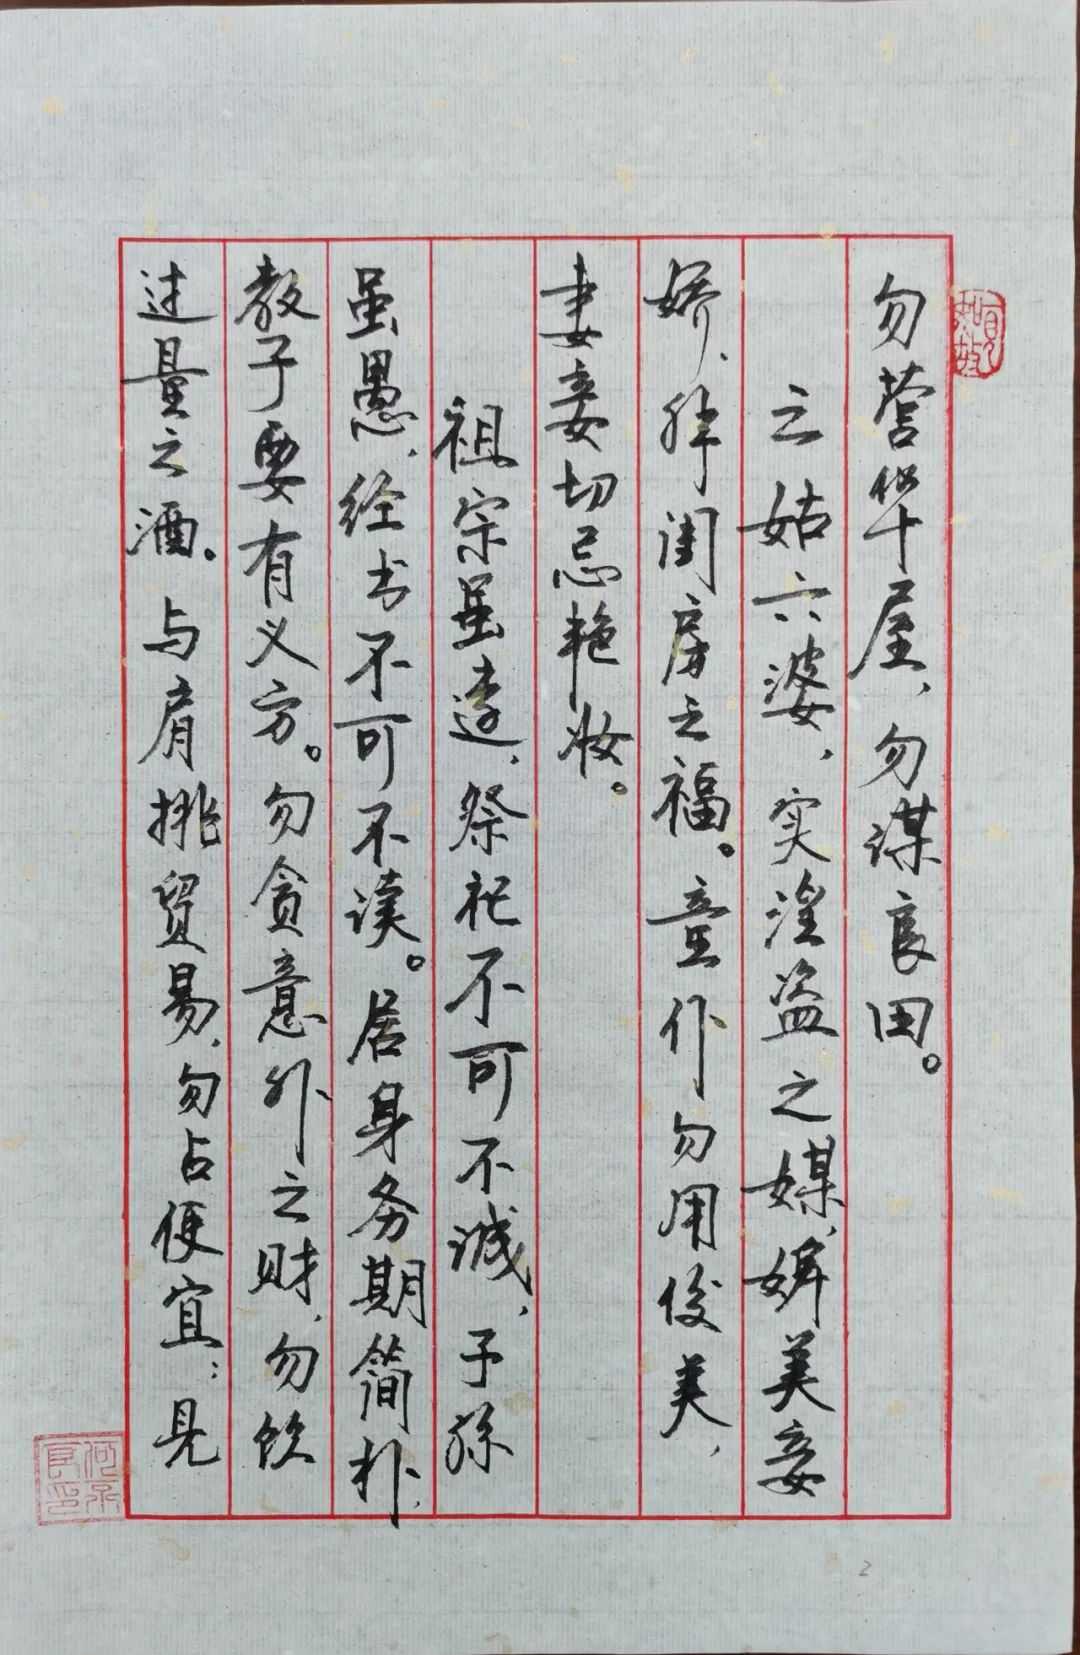 勿营华屋，勿谋良田。
三姑六婆，实淫盗之媒，婢美妾
娇，非闺房之福。童仆勿用俊美，
妻妾切忌艳妆。
祖宗虽远，祭祀不可不诚，子孙
虽愚，经书不可不读。居身务期简朴，
教子要有义方。勿贪意外之财，勿饮
过量之酒。与肩挑贸易，勿占便宜；见
2